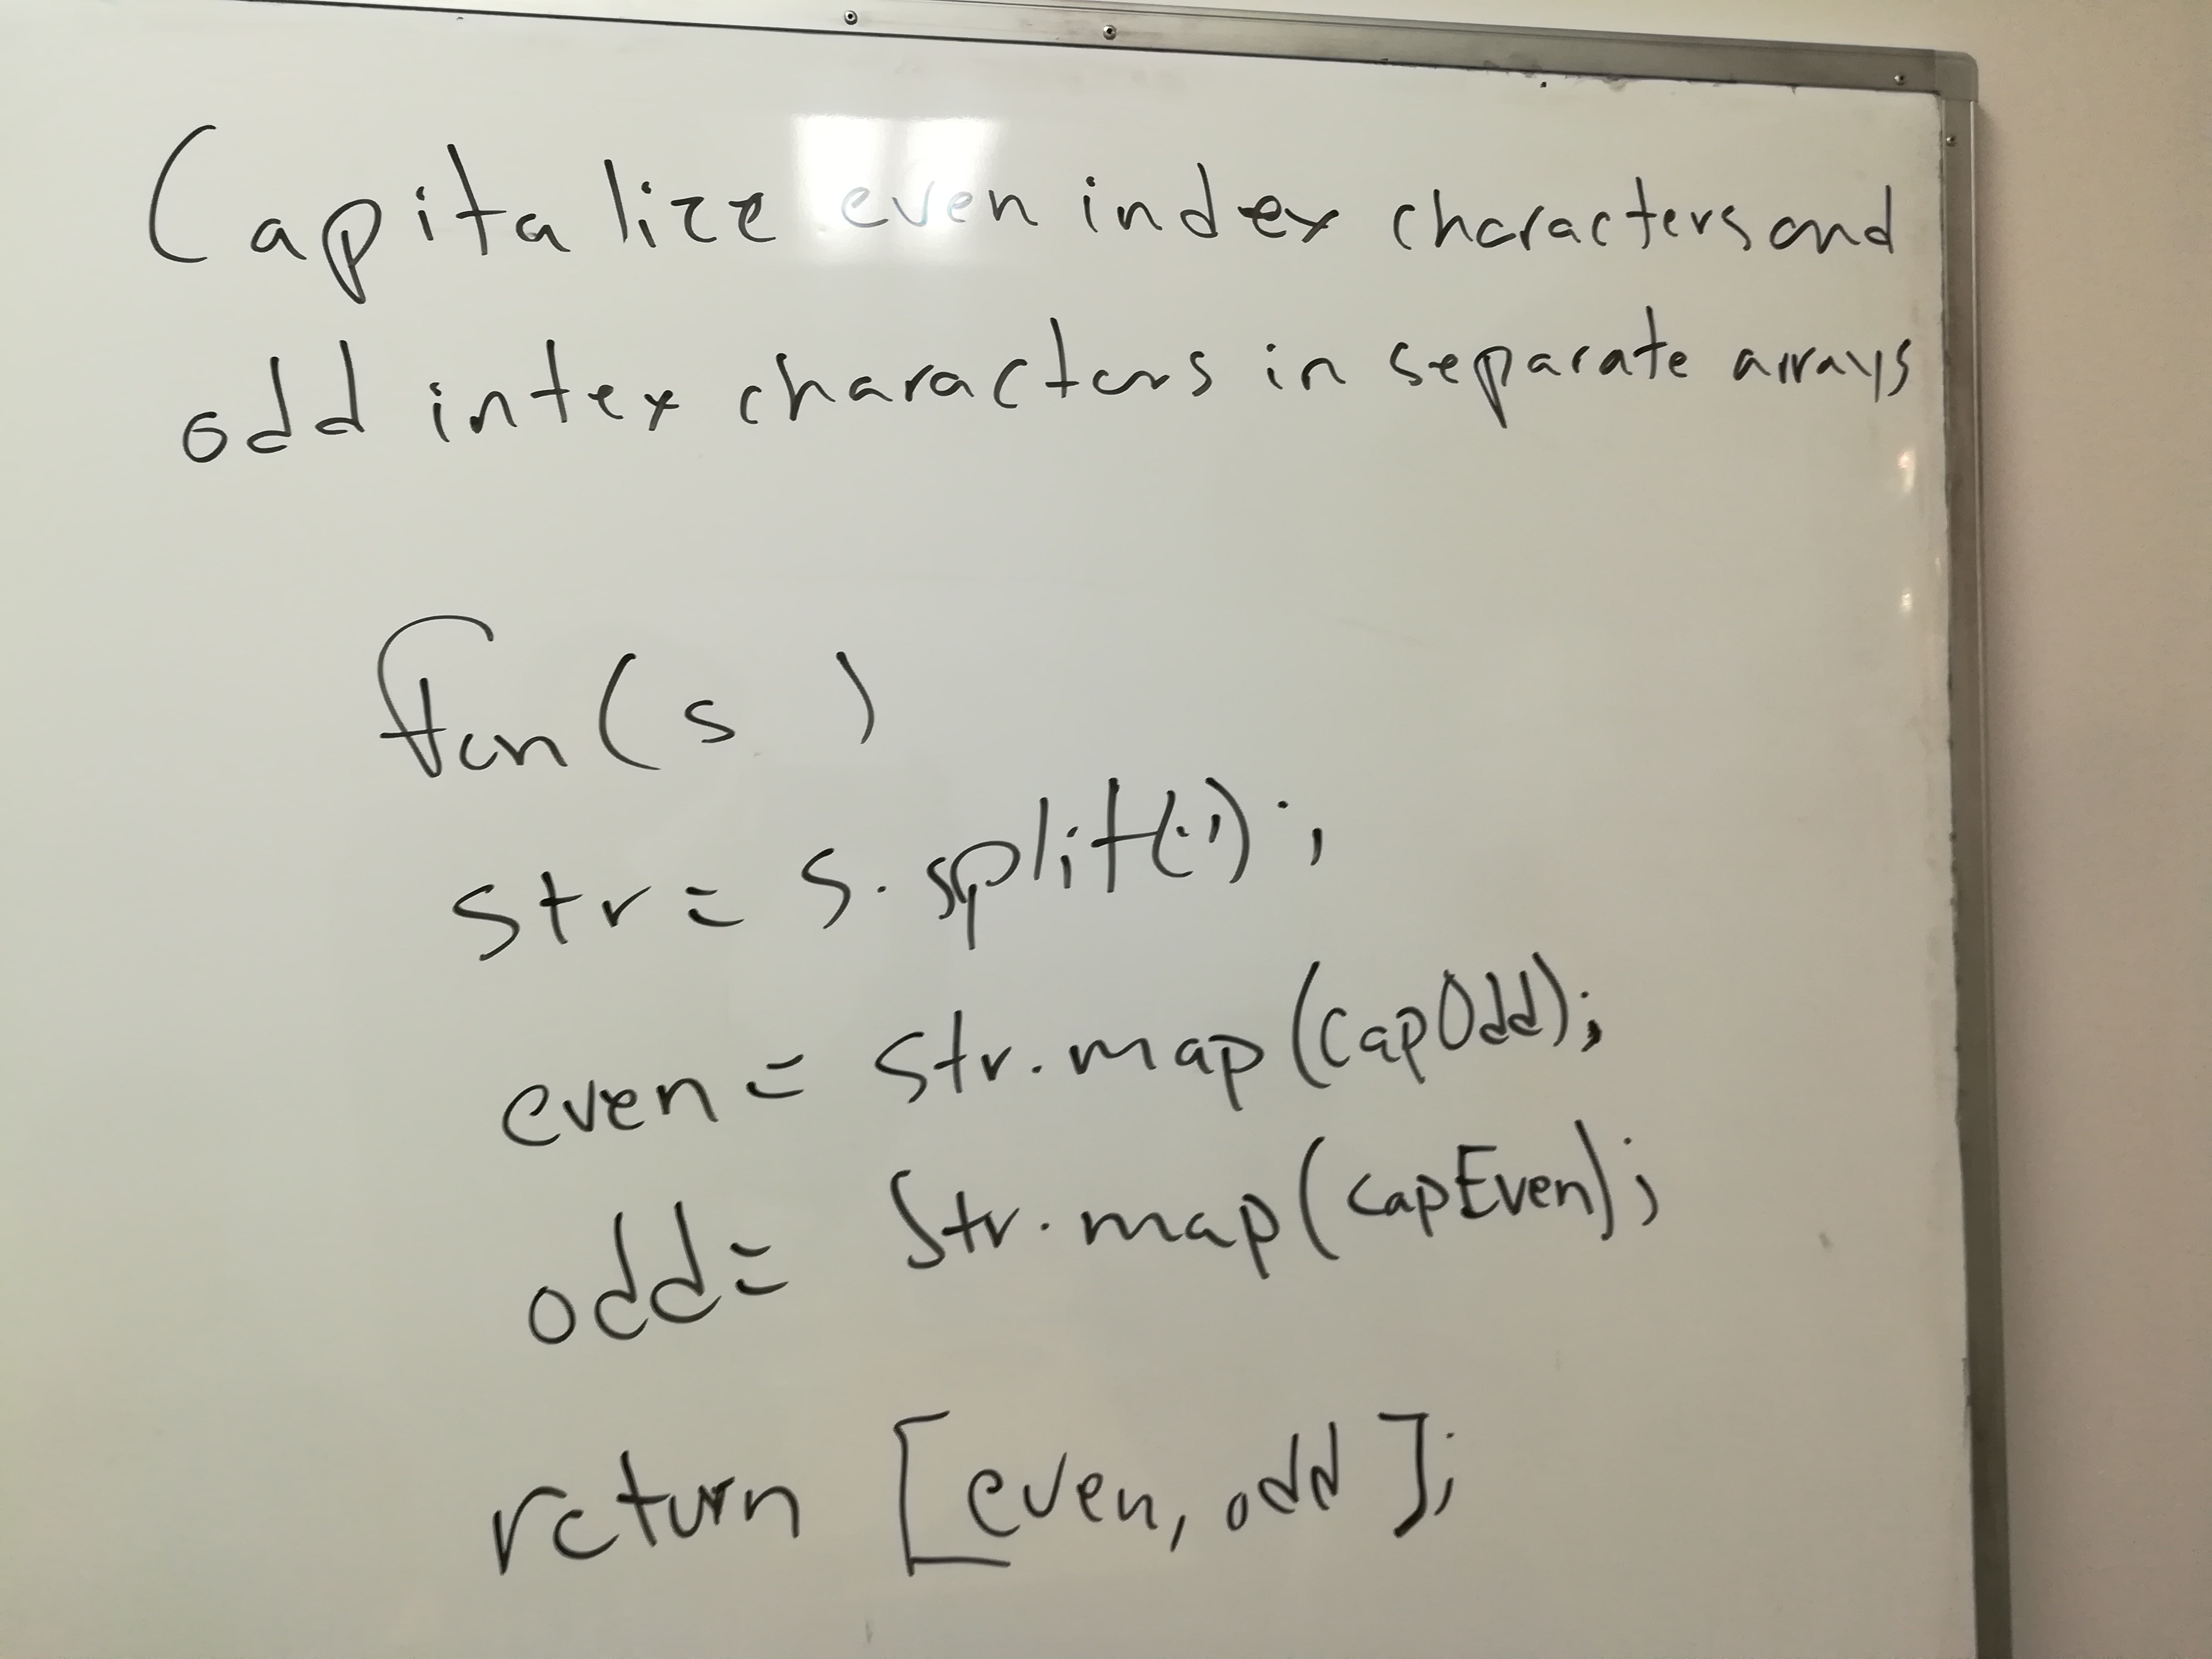 Capitalize even index characters and
odd intex characters in separate arrays
fcn(s )
str = s.split('');
even = str.map(capOdd);
odd = str.map(capEven);
return [even, odd];